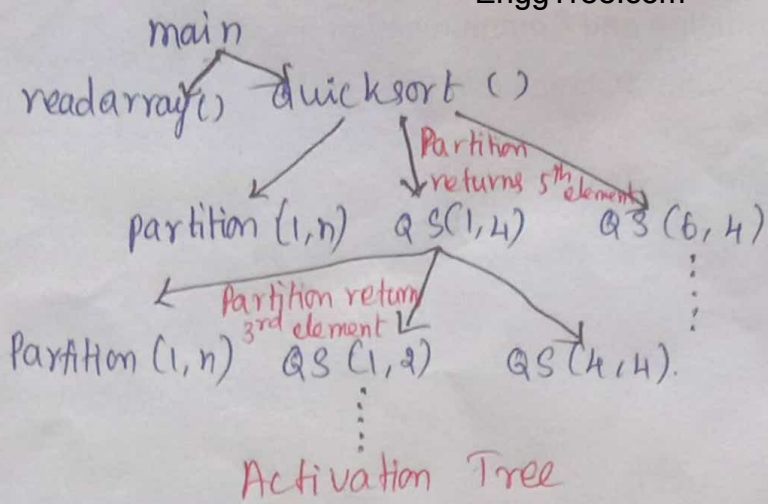 EnggTree.com
main
readarray() Quicksort ()
Partition
returns 5th element
partition (1,n) QS(1,4) QS (6,4)
Partition return
3rd element
Partition (1,n) QS (1,2) QS (4,4).
Activation Tree